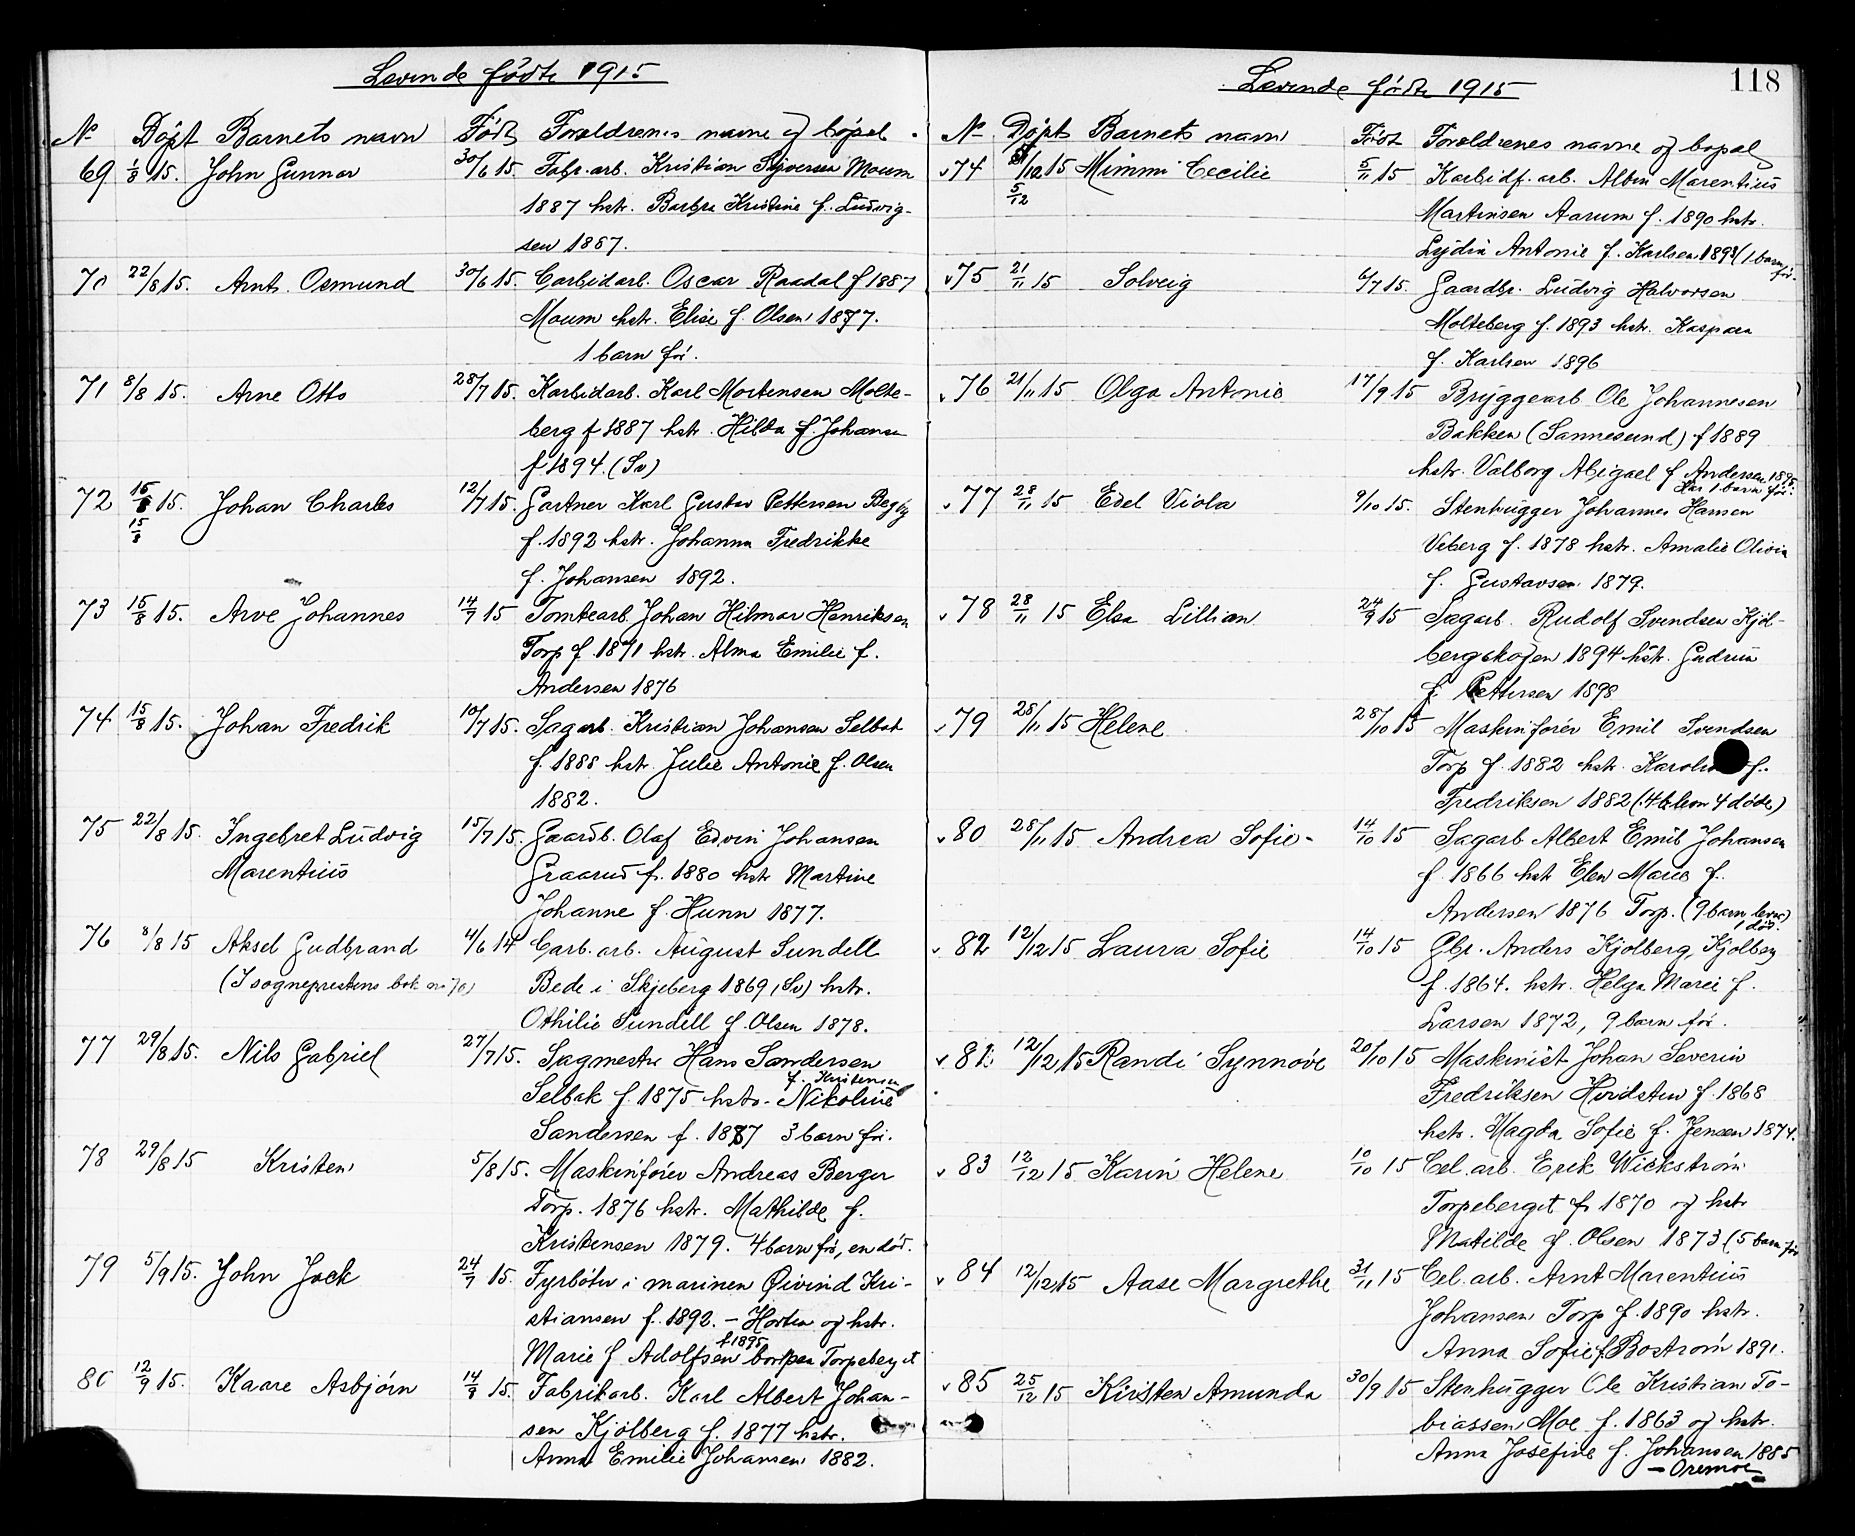 Levende fødte 1915
No Døpt Barnets navn Født Foreldrenes navne og bopel.
69 1/8 15. John Gunnar 30/6 15. Fabr. arb. Kristian Moum
1887 hstr. Barbra Kristine f. Ludvig-
sen 1887.
70 22/8 15. Arnt Osmund 30/6 15. Carbidarb. Oscar Raadal f 1887
Moum hstr. Elise f. Olsen 1877.
1 barn før.
71 8/8 15. Arne Otto 28/7 15. Karbidarb. Karl Mortensen Molte-
berg f 1887 hstr. Hilda f. Johansen
f 1894. (Sv)
72 15/8 15. Johan Charles 12/7 15. Gartner Karl Gustav Pettersen Begby
15/8 f. 1892 hstr. Johanna Fredrikke
f. Johansen 1892.
73 15/8 15. Arve Johannes 14/7 15 Tomtearb. Johan Hilmar Henriksen
Torp f. 1871 hstr. Alma Emilie f.
Andersen 1876
74 15/8 15. Johan Fredrik 10/7 15. Sagarb. Kristian Johansen Selbak
f. 1888 hstr. Julie Antonie f. Olsen
1882.
75 22/8 15. Ingebret Ludvig 15/7 15. Gaardb. Olaf Edvin Johansen
Marentius Graarud f. 1880 hstr Martine
Johanne f. Hunn 1877.
76 8/8 15 Aksel Gudbrand 4/6 14 Carb. arb. August Sundell
(I sogneprestens bok no 70) Bede i Skjeberg 1869 (Sv) hstr.
Othilie Sundell f. Olsen 1878.
77 29/8 15. Nils Gabriel 27/7 15. Sagmester Hans Sandersen
f. Kristensen
Selbak f. 1875 hstr. Nikoline
Sandersen f. 1877 3 barn før.
78 29/8 15 Kristen 5/8 15. Maskinfører Andreas Berger
Torp. 1876 hstr. Mathilde f.
Kristensen 1879. 4 barn før, en død.
79 5/9 15. John Jack 24/7 15. Fyrbøter i marinen Øivind Kri-
stiansen f. 1892. – Horten og hstr.
f 1895
Marie f Adolfsen Torpeberget
80 12/9 15. Kaare Asbjørn 14/8 15. Fabrikarb. Karl Albert Johan-
sen Kjølberg f. 1877 hstr.
Anna Emilie Johansen 1882.
118
Levende fødte 1915
No Døpt Barnets navn Født Foreldrenes navne og bopel
74 5/12 15 Mimmi Cecilie 5/11 15 Karbidf. arb. Albin Marentius
5/12 Martinsen Aarum f. 1890 hstr.
Lydia Antonie f. Karlsen 1893 (1 barn
før.
75 21/11 15 Solveig 6/7 15. Gaardbr. Ludvig Halvorsen
Molteberg f. 1893 hstr. Kaspara
f. Karlsen 1896
76 21/11 15 Olga Antonie 17/9 15 Bryggearb Ole Johannesen
Bakken (Sannesund) f 1889
hstr. Valborg Abigael f Andersen 1895
Har 1 barn før.
77 28/11 15 Edel Viola 9/10 15. Stenhugger Johannes Hansen
Veberg f. 1878 hstr. Amalie Olivia
f. Gustavsen 1879.
78 28/11 15 Elsa Lillian 24/9 15 Sagarb. Rudolf Svendsen Kjøl-
bergskogen 1894 hstr. Gudrun
f. Pettersen 1898
79 28/11 15 Helene 28/10 15 Maskinfører Emil Svendsen
Torp f. 1882 hstr. f.
Fredriksen 1882 (4 døde)
80 28/11 15 Andrea Sofie- 14/10 15 Sagarb Albert Emil Johansen
f 1866 hstr Elen Marie f.
Andersen 1876 Torp. (9 barn lever)
1 død.
82 12/12 15 Laura Sofie 14/10 15 Gbr. Anders Kjølberg, Kjølberg
f. 1864. hstr. Helga Marie f.
Larsen 1872, 9 barn før.
81. 12/12 15 Randi Synnøve 20/10 15 Maskinist Johan Severin
Fredriksen Hvidsten f. 1868
hstr. Magda Sofie f. Jensen 1874.
83 12/12 15 Karin Helene 10/10 15 Cel. arb. Erik Wickstrøm
Torpeberget f. 1870 og hstr
Matilde f. Olsen 1873 (5 barn før
84 12/12 15 Aase Margrethe 31/11 15 Cel. arb. Arnt Marentius
Johansen Torp f. 1890 hstr.
Anna Sofie f. Bostrøm 1891.
85 25/12 15 Kirsten Amunda 30/9 15 Stenhugger Ole Kristian To-
biassen Moe f. 1863 og hstr.
Anna Josefine f. Johansen 1885
– Oremoe